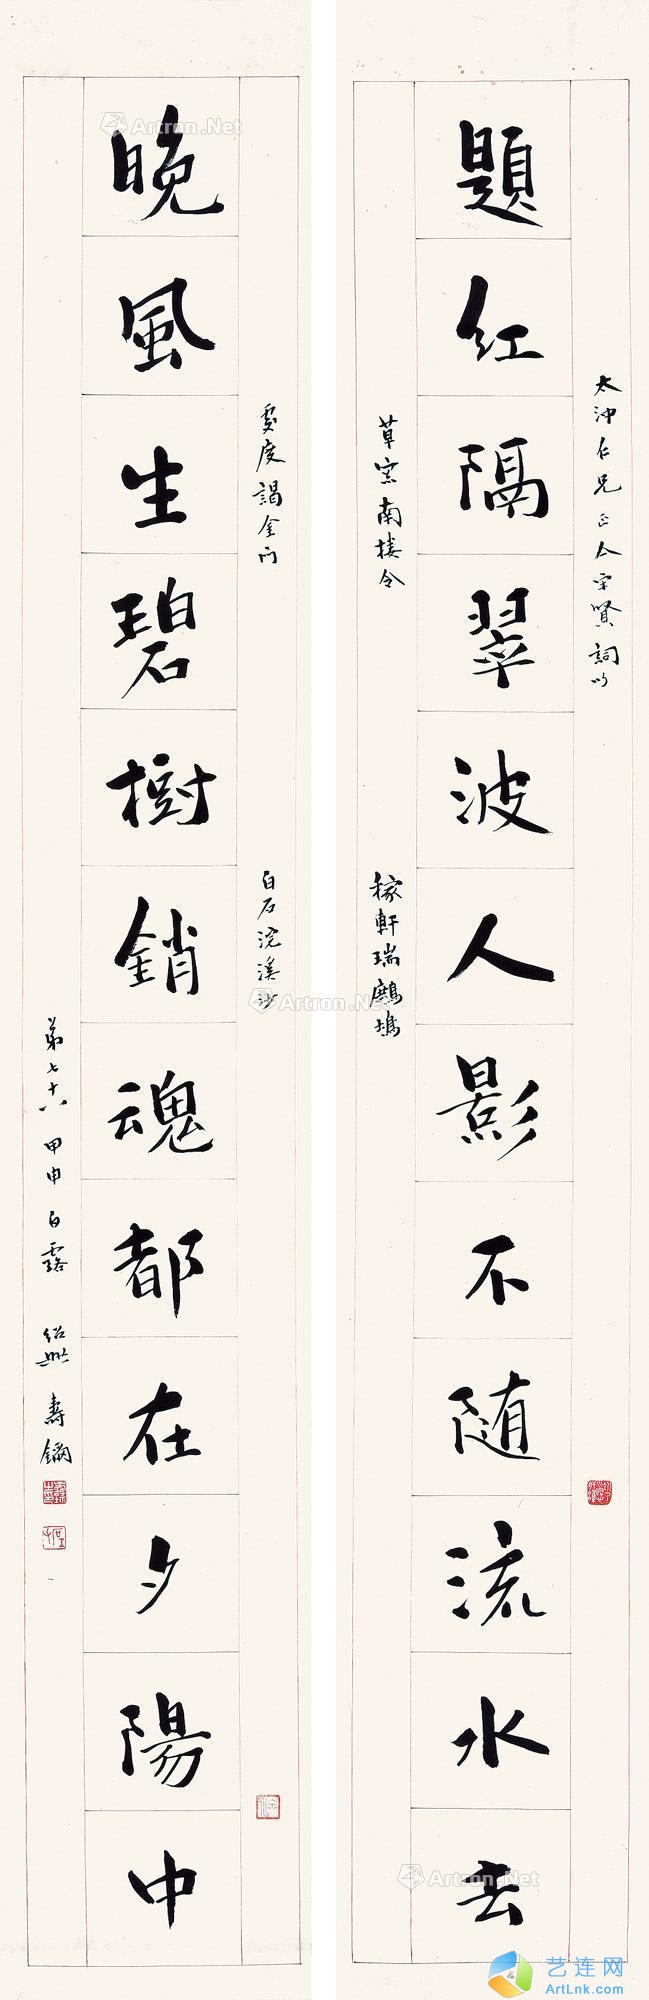 太沖仁兄正亼宋賢詞
題紅隔翠波人影不随流水去
草窗南楼令
稼軒瑞鷓鴣
度謁金门
白石浣溪沙
晚風生碧樹銷魂都在夕陽中
第七十八 甲申白露 紹興壽鑈
Artron.Net
Artron.Net
Artron.Net
艺连网
ArtLnk.com